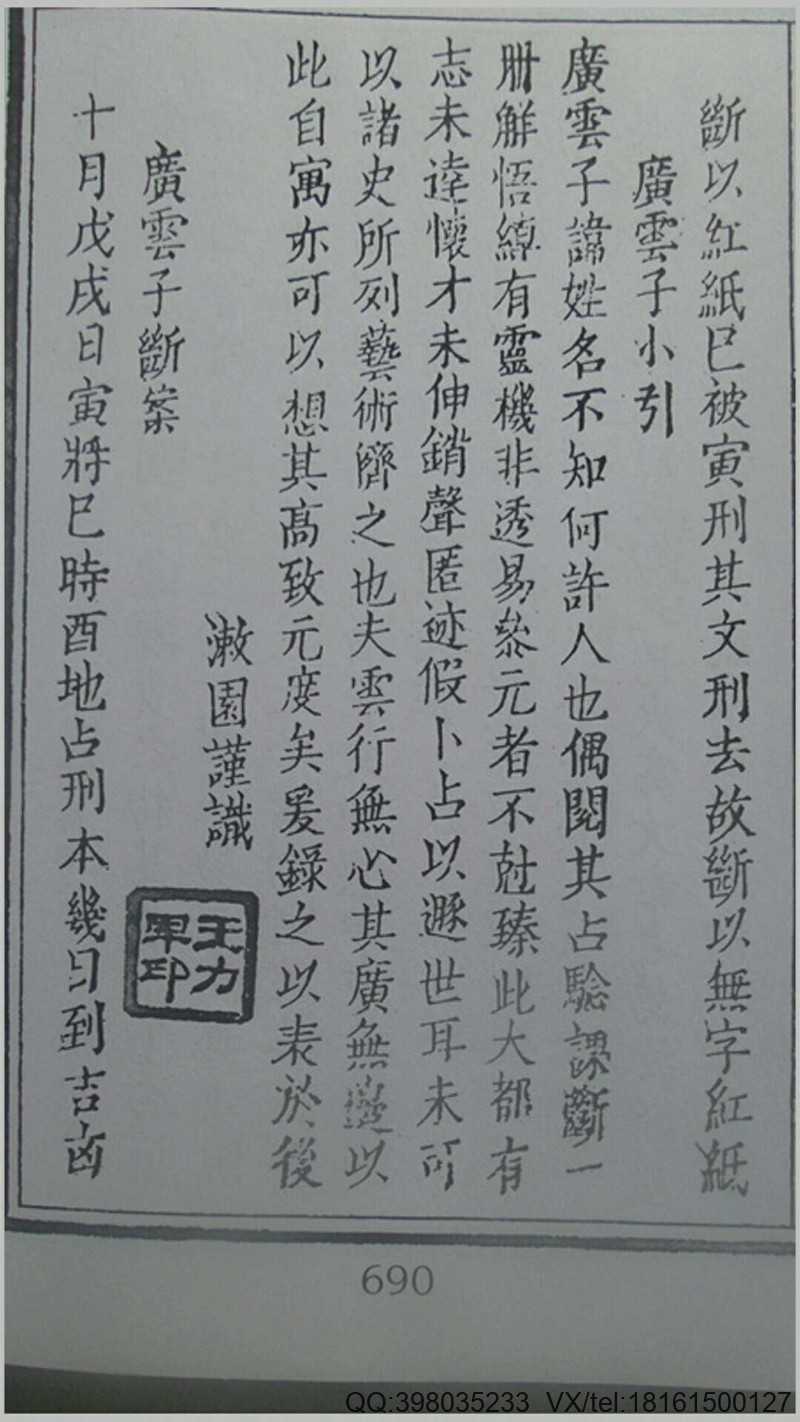 斷以紅紙巳被寅刑其文刑去故斷以無字紅紙
廣雲子小引
廣雲子諱姓名不知何許人也偶閱其占驗課斷一
冊觧悟綽有靈機非透易叅元者不尅臻此大都有
志未逹懷才未伸銷聲匿迹假卜占以遯世耳未可
以諸史所列藝術儕之也夫雲行無心其廣無邉以
此自寓亦可以想其髙致元度矣爰錄之以表於後
漱園謹識
王力軍印
廣雲子斷案
十月戊戌日寅將巳時酉地占刑本幾日到吉㐫
690
QQ:398035233 VX/tel:18161500127